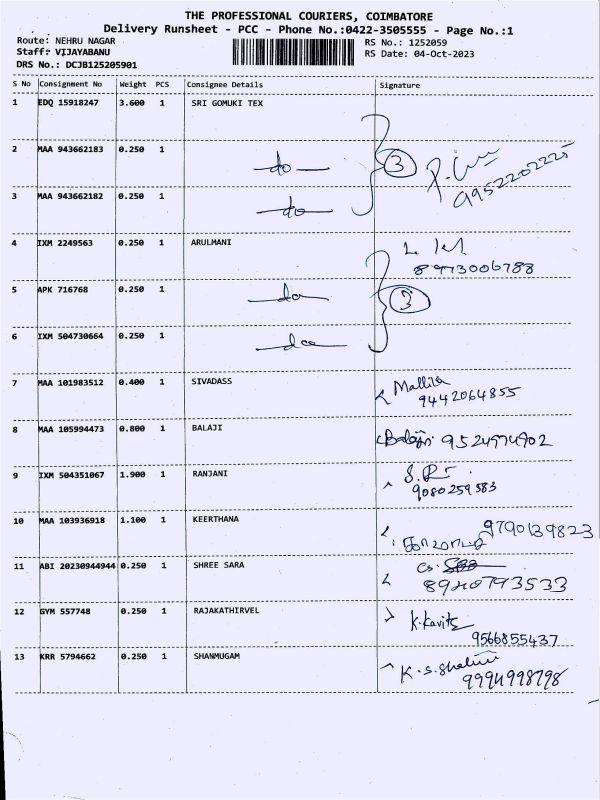 THE PROFESSIONAL COURIERS, COIMBATORE
Delivery Runsheet - PCC - Phone No.:0422-3505555 - Page No.:1
Route: NEHRU NAGAR
RS No.: 1252059
Staff: VIJAYABANU
RS Date: 04-Oct-2023
DRS No.: DCJB125205901
S No Consignment No Weight PCS Consignee Details Signature
1 EDQ 15918247 3.600 1 SRI GOMUKI TEX
2 MAA 943662183 0.250 1 do 3
9952202225
3 MAA 943662182 0.250 1 do
4 IXM 2249563 0.250 1 ARULMANI
8973006788
5 APK 716768 0.250 1 do 3
6 IXM 504730664 0.250 1 do
7 MAA 101983512 0.400 1 SIVADASS Mallika
9442064855
8 MAA 105994473 0.800 1 BALAJI Balaji 9524974902
9 IXM 504351067 1.900 1 RANJANI
9080259583
10 MAA 103936918 1.100 1 KEERTHANA 9790139823
11 ABI 20230944944 0.250 1 SHREE SARA
8940793533
12 GYM 557748 0.250 1 RAJAKATHIRVEL K.Kavitha
9566855437
13 KRR 5794662 0.250 1 SHANMUGAM K.S.Shalini
9994998798